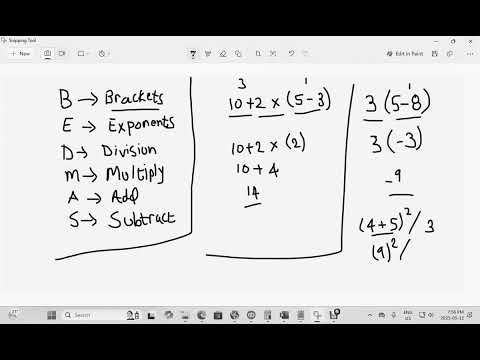 Snipping Tool
Edit in Paint
B → Brackets
E → Exponents
D → Division
M → Multiply
A → Add
S → Subtract
3 1
10+2 × (5-3)
10+2 × (2)
10+4
14
1
3(5-8)
3(-3)
-9
(4+5)²/ 3
(9)²/
Search
ENG
7:56 PM